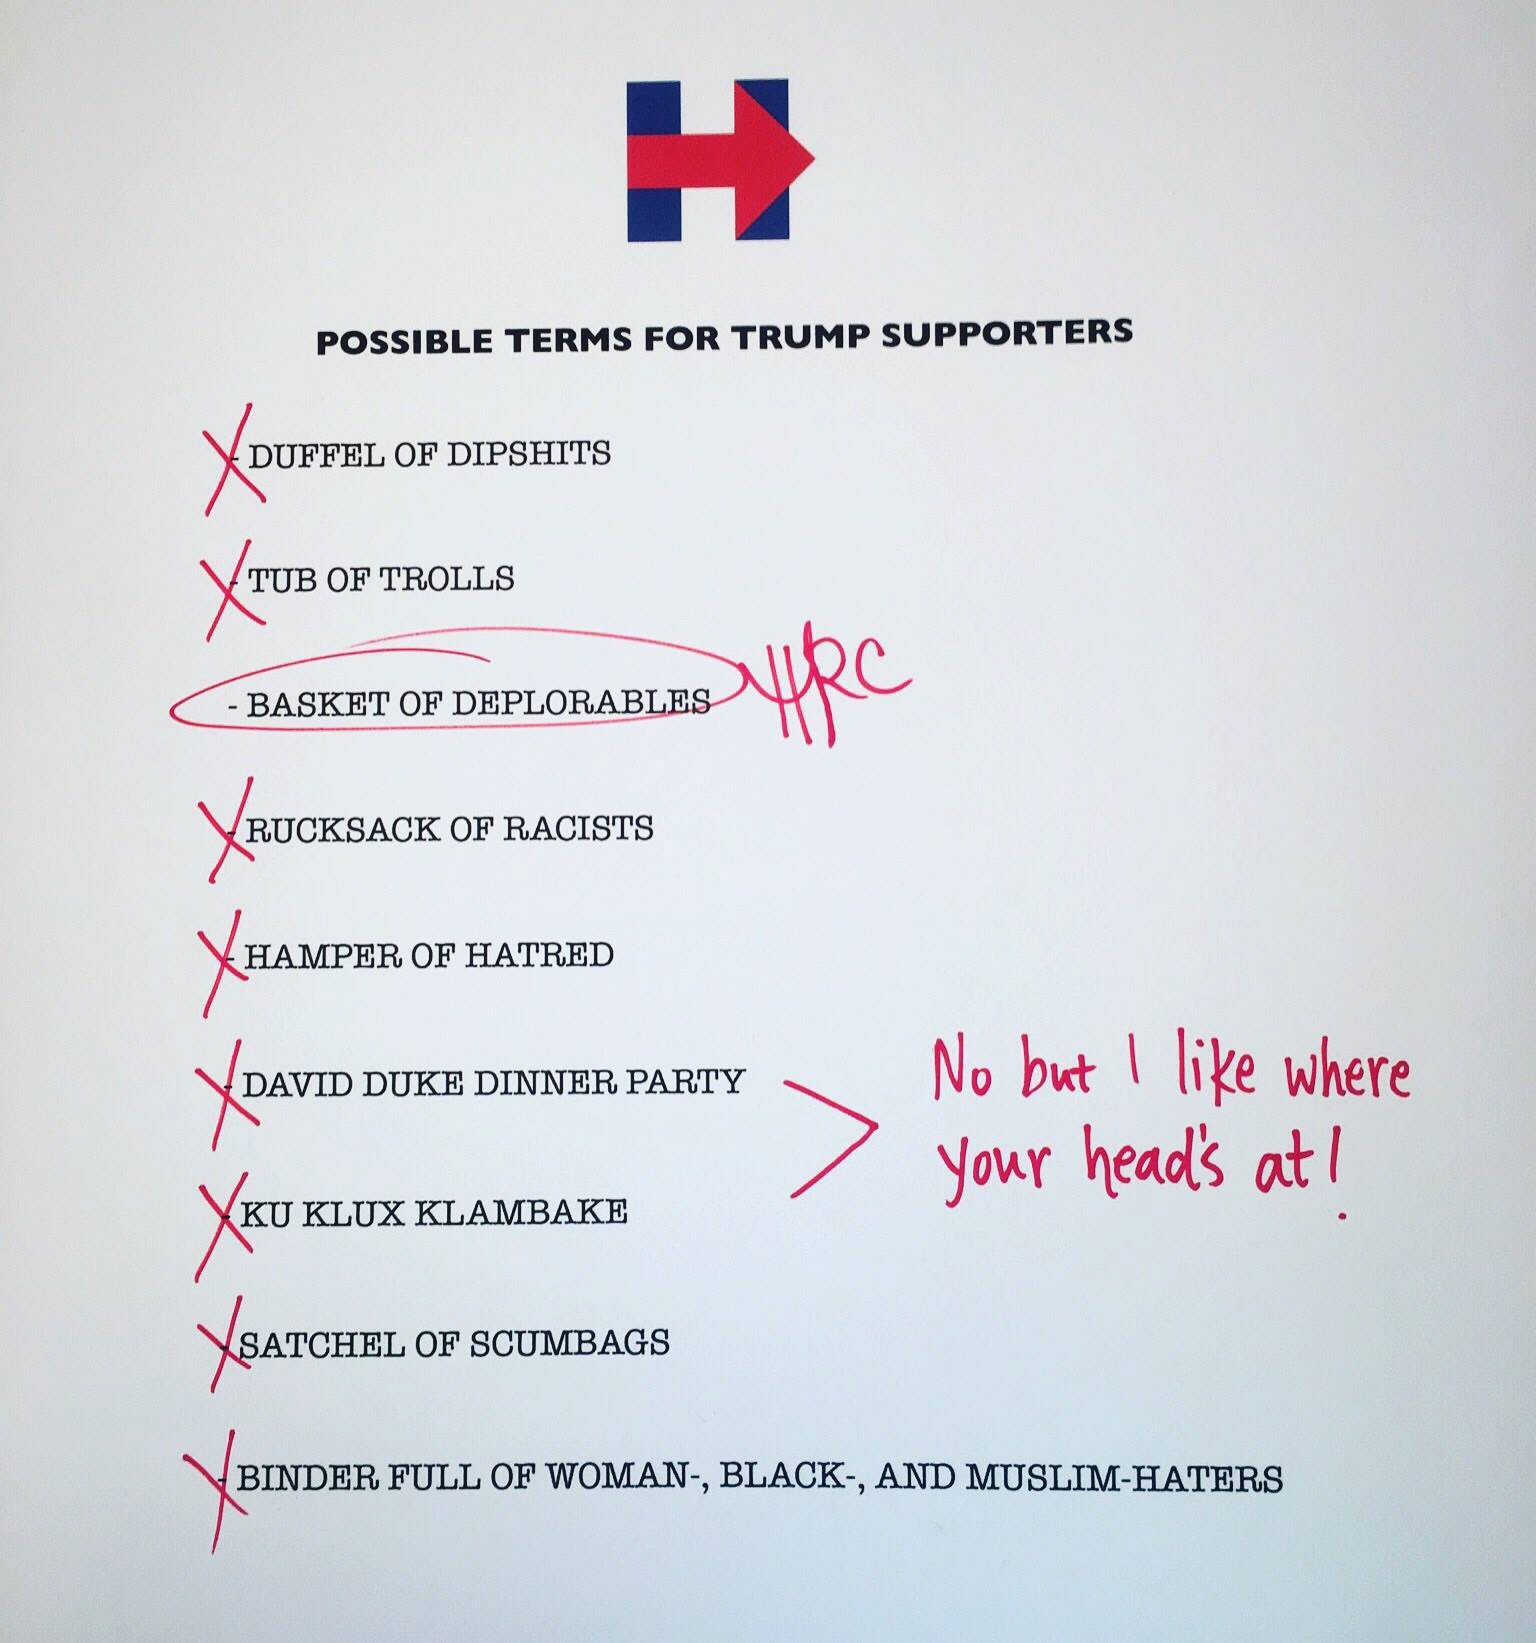 H
POSSIBLE TERMS FOR TRUMP SUPPORTERS
- DUFFEL OF DIPSHITS
- TUB OF TROLLS
- BASKET OF DEPLORABLES HRC
- RUCKSACK OF RACISTS
- HAMPER OF HATRED
- DAVID DUKE DINNER PARTY
No but I like where
your head's at!
- KU KLUX KLAMBAKE
- SATCHEL OF SCUMBAGS
- BINDER FULL OF WOMAN-, BLACK-, AND MUSLIM-HATERS